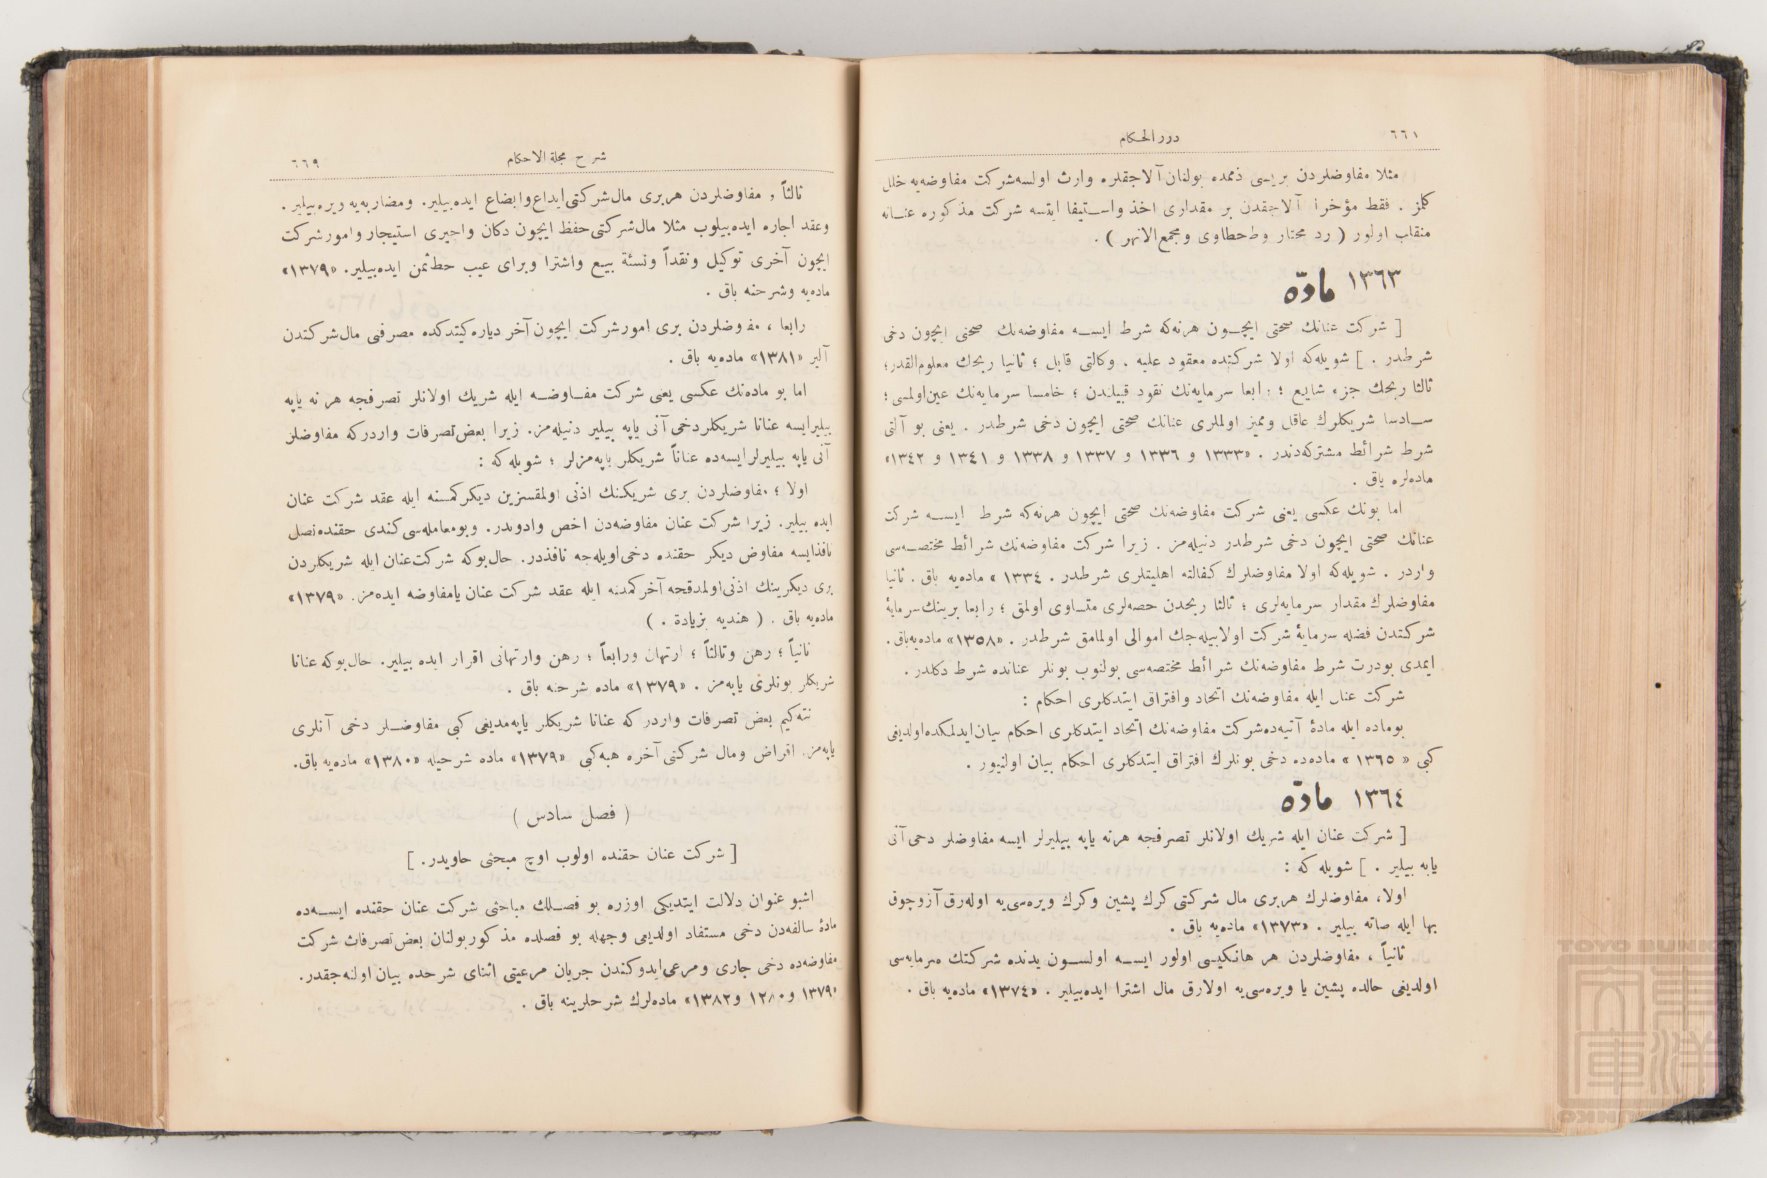 ٦٦١
دررالحكام
مثلا مفاوضلردن بریسی ذممده بولنان آلاجقلره وارث اولسه شركت مفاوضه‌یه خلل
كلمز . فقط مؤخراً آلاجقدن بر مقداری اخذ واستیفا ایتسه شركت مذكوره عنانه
منقلب اولور ( رد محتار وطحطاوی ومجمع الانهر ) .
١٣٦٣ مادّه
[ شركت عنانك صحتی ایچون هرنه‌كه شرط ایسه مفاوضه‌نك صحتی ایچون دخی
شرطدر . ] شویله‌كه اولا شركتده معقود علیه ، وكالتی قابل ؛ ثانیا ربحك معلوم القدر ؛
ثالثا ربحك جزء شایع ؛ رابعا سرمایه‌نك نقود قبیلندن ؛ خامسا سرمایه‌نك عین اولمسی ؛
سادسا شریكلرك عاقل وممیز اولملری عنانك صحتی ایچون دخی شرطدر . یعنی بو آلتی
شرط شرائط مشتركه‌دندر . «١٣٣٣ و ١٣٣٦ و ١٣٣٧ و ١٣٣٨ و ١٣٤١ و ١٣٤٢»
ماده‌لره باق .
اما بونك عكسی یعنی شركت مفاوضه‌نك صحتی ایچون هرنه‌كه شرط ایسه شركت
عنانك صحتی ایچون دخی شرطدر دنیله‌مز . زیرا شركت مفاوضه‌نك شرائط مختصه‌سی
واردر . شویله‌كه اولا مفاوضلرك كفالته اهلیتلری شرطدر . ١٣٣٤ » ماده‌یه باق . ثانیا
مفاوضلرك مقدار سرمایه‌لری ؛ ثالثا ربحدن حصه‌لری متساوی اولمق ؛ رابعا برینك سرمایهٔ
شركتدن فضله سرمایهٔ شركت اولابیله‌جك اموالی اولمامق شرطدر . «١٣٥٨» ماده‌یه باق .
ایمدی بودرت شرط مفاوضه‌نك شرائط مختصه‌سی بولنوب بونلر عنانده شرط دكلدر .
شركت عنان ایله مفاوضه‌نك اتحاد وافتراق ایتدكلری احكام :
بوماده ایله مادهٔ آتیه‌ده شركت مفاوضه‌نك اتحاد ایتدكلری احكام بیان ایدلمكده اولدیغی
كبی « ١٣٦٥ » ماده‌ده دخی بونلرك افتراق ایتدكلری احكام بیان اولنیور .
١٣٦٤ مادّه
[ شركت عنان ایله شریك اولانلر تصرفجه هرنه یاپه بیلیرلر ایسه مفاوضلر دخی آنی
یاپه بیلیر . ] شویله كه :
اولا، مفاوضلرك هربری مال شركتی كرك پشین وكرك ویره‌سی‌یه اوله‌رق آز وچوق
بها ایله صاته بیلیر . «١٣٧٣» ماده‌یه باق .
ثانیاً ، مفاوضلردن هر هانكیسی اولور ایسه اولسون یدنده شركتك سرمایه‌سی
اولدیغی حالده پشین یا ویره‌سی‌یه اولارق مال اشترا ایده‌بیلیر . «١٣٧٤» ماده‌یه باق .
شرح مجلة الاحكام
٦٦٩
ثالثاً ، مفاوضلردن هربری مال شركتی ایداع وابضاع ایده‌بیلیر. ومضاربه‌یه ویره‌بیلیر.
وعقد اجاره ایده‌بیلوب مثلا مال شركتی حفظ ایچون دكان واجیری استیجار وامور شركت
ایچون آخری توكیل ونقداً ونسئة بیع واشترا وبرای عیب حط ثمن ایده‌بیلیر. «١٣٧٩»
ماده‌یه وشرحنه باق .
رابعا ، مفاوضلردن بری امور شركت ایچون آخر دیاره كیتدكده مصرفی مال شركتدن
آلیر «١٣٨١» ماده‌یه باق .
اما بو ماده‌نك عكسی یعنی شركت مفاوضه ایله شریك اولانلر تصرفجه هر نه یاپه
بیلیرایسه عنانا شریكلر دخی آنی یاپه بیلیر دنیله‌مز. زیرا بعض تصرفات واردركه مفاوضلر
آنی یاپه بیلیرلر ایسه‌ده عناناً شریكلر یاپه‌مزلر ؛ شویله كه :
اولا ؛ مفاوضلردن بری شریكنك اذنی اولمقسزین دیكر كمسنه ایله عقد شركت عنان
ایده بیلیر. زیرا شركت عنان مفاوضه‌دن اخص وادوندر. وبومعامله‌سی كندی حقنده نصل
نافذایسه مفاوض دیكر حقنده دخی اویله‌جه نافذدر. حال بوكه شركت عنان ایله شریكلردن
بری دیكرینك اذنی اولمدقجه آخر كمسنه ایله عقد شركت عنان یا مفاوضه ایده‌مز. «١٣٧٩»
ماده‌یه باق . ( هندیه بزیادة . )
ثانیاً ؛ رهن وثالثاً ؛ ارتهان ورابعاً ؛ رهن وارتهانی اقرار ایده بیلیر. حال بوكه عنانا
شریكلر بونلری یاپه‌مز . «١٣٧٩» ماده شرحنه باق .
نته‌كیم بعض تصرفات واردر كه عنانا شریكلر یاپه‌مدیغی كبی مفاوضلر دخی آنلری
یاپه‌مز. اقراض ومال شركتی آخره هبه كبی «١٣٧٩» ماده شرحیله «١٣٨٠» ماده‌یه باق.
( فصل سادس )
[ شركت عنان حقنده اولوب اوچ مبحثی حاویدر. ]
اشبو عنوان دلالت ایتدیكی اوزره بو فصلك مباحثی شركت عنان حقنده ایسه‌ده
مادهٔ سالفه‌دن دخی مستفاد اولدیغی وجهله بو فصلده مذكور بولنان بعض تصرفات شركت
مفاوضه‌ده دخی جاری ومرعی ایدوكندن جریان مرعیتی اثنای شرحده بیان اولنه‌جقدر.
«١٣٧٩ و ١٣٨٠ و ١٣٨٢» ماده‌لرك شرحلرینه باق .
TOYO BUNKO